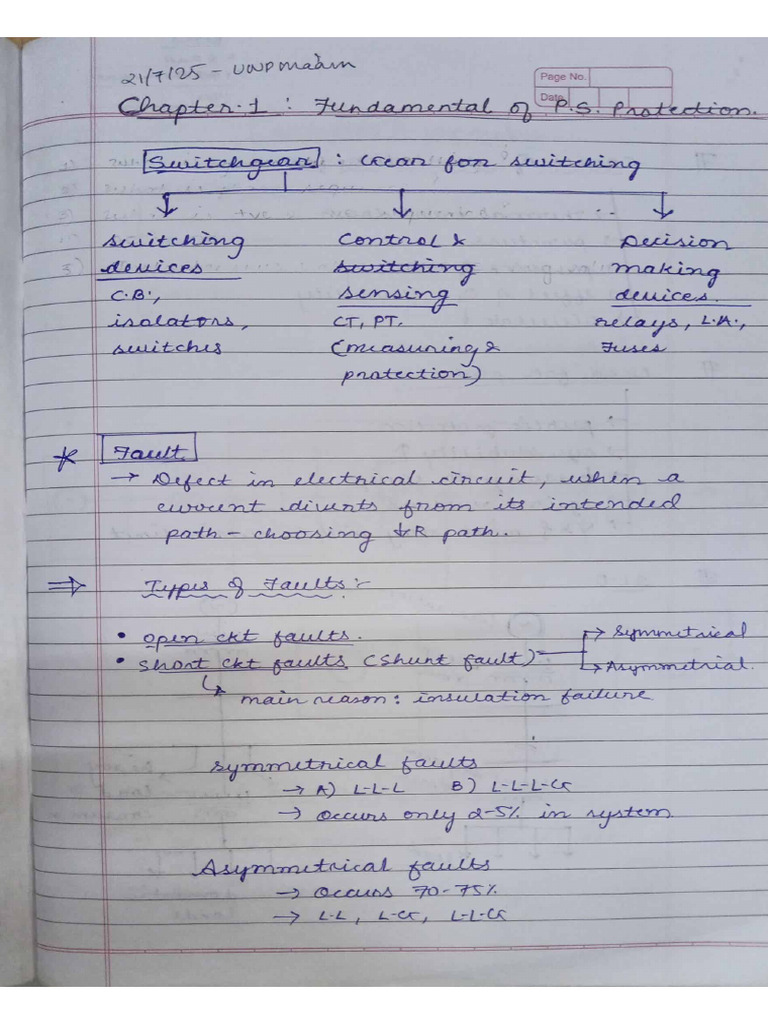 21/7/25 - UNP Ma'am
Page No.
Date
Chapter-1 : Fundamental of P.S. Protection.
Switchgear : Gear for switching
switching control & Decision
devices switching making
C.B., sensing devices.
isolators, CT, PT. relays, L.A.,
switches (measuring & Fuses
protection)
* Fault
→ Defect in electrical circuit, when a
current diverts from its intended
path - choosing ↓R path.
⇒ Types of Faults:-
• open ckt faults.
→ Symmetrical
• short ckt faults (shunt fault)
→ Asymmetrial.
↳ main reason: insulation failure
symmetrical faults
→ A) L-L-L B) L-L-L-G
→ occurs only 2-5% in system
Asymmetrical faults
→ occurs 70-75%
→ L-L, L-G, L-L-G